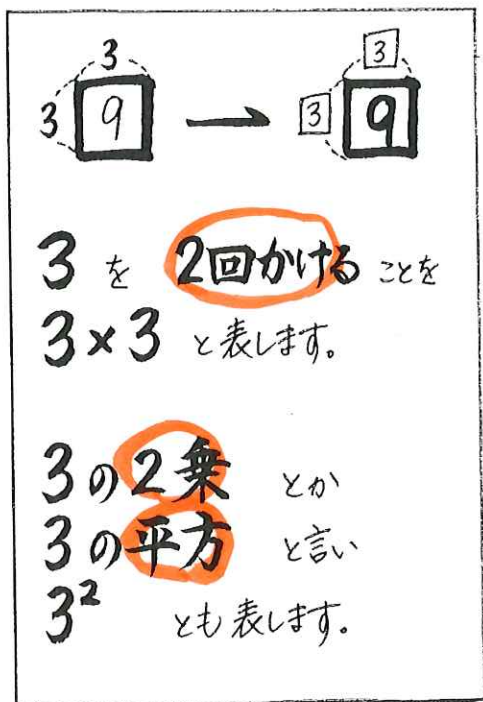 3 3
3 9 → 3 9
3 を 2回かける ことを
3×3 と表します。
3の2乗 とか
3の平方 と言い
3² とも表します。